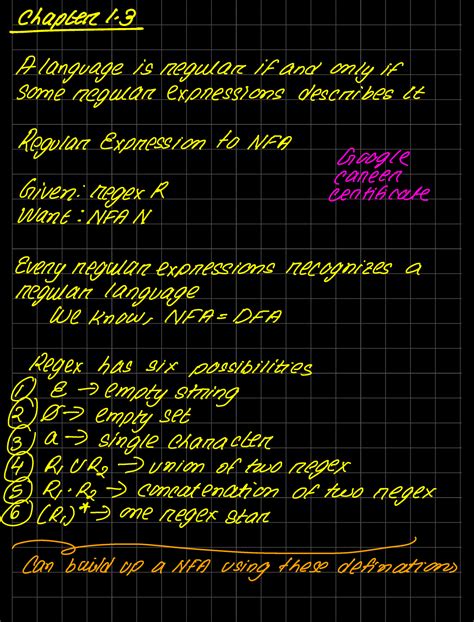 Chapter 1.3
A language is regular if and only if
some regular expressions describes it
Regular Expression to NFA
Google
career
certificate
Given: regex R
Want: NFA N
Every regular expressions recognizes a
regular language
We know, NFA = DFA
Regex has six possibilities
① ε → empty string
② Ø → empty set
③ a → single character
④ R₁ ∪ R₂ → union of two regex
⑤ R₁ · R₂ → concatenation of two regex
⑥ (R₁)* → one regex star
Can build up a NFA using these definations